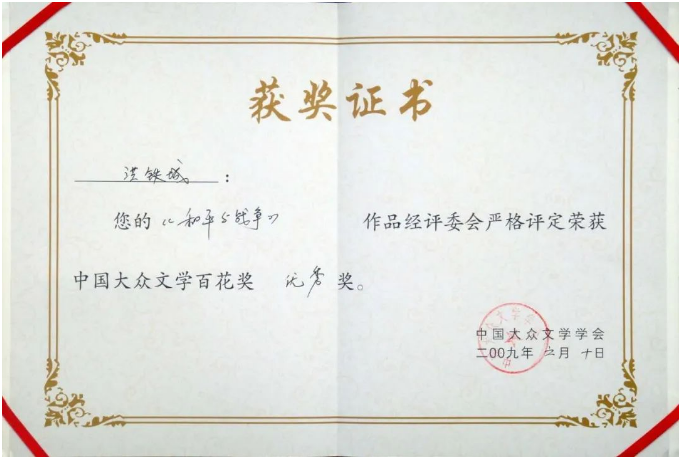 获奖证书
洪铁城：
您的《和平与战争》 作品经评委会严格评定荣获
中国大众文学百花奖 优秀 奖。
中国大众文学学会
二00九年 六月 十日